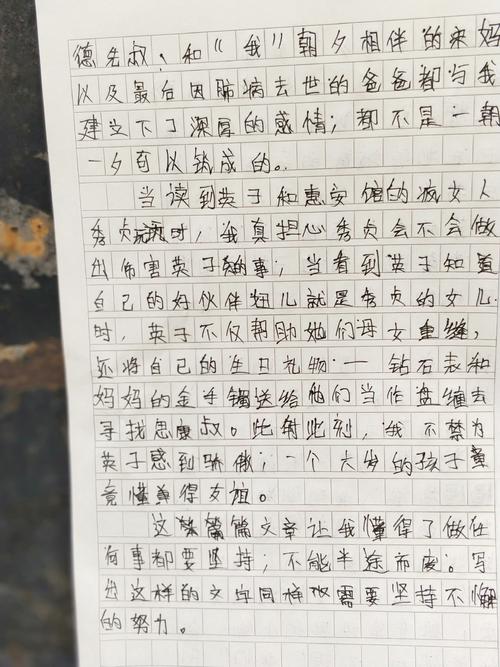 德先叔、和“我”朝夕相伴的宋妈
以及最后因肺病去世的爸爸都与我
建立下了深厚的感情；都不是一朝
一夕可以铸成的。
当读到英子和惠安馆的疯女人
秀贞玩时，我真担心秀贞会不会做
出伤害英子的事；当看到英子知道
自己的好伙伴妞儿就是秀贞的女儿
时，英子不仅帮助她们母女重缝，
还将自己的生日礼物——钻石表和
妈妈的金手镯送给他们当作盘缠去
寻找思康叔。此时此刻，我不禁为
英子感到骄傲；一个六岁的孩子竟
竟懂得友谊。
这篇文章让我懂得了做任
何事都要坚持；不能半途而废。写
出这样的文字同样需要坚持不懈
的努力。